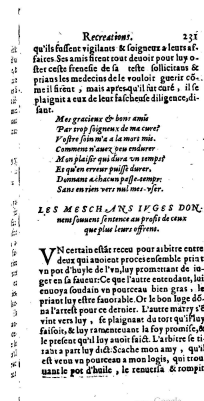 Recreations. 231
qu'ils fussent vigilants & soigneux a leurs af-
faires. Ses amis firent tout devoir pour luy o-
ster ceste frenesie de sa teste sollicitans &
prians les medecins de le vouloir guerir cō-
me il firent, mais apres qu'il fut curé, il se
plaignit a eux de leur fascheuse diligence, di-
sant.
Mes gracieux & bons amis
Par trop soigneux de ma cure?
Vostre soin m'a a la mort mis.
Comment n'avez peu endurer
Mon plaisir qui dura un temps?
Et qu'en erreur puisse durer,
Donnant a chacun passe-temps:
Sans en rien vers nul mes-user.
LES MESCHANS IUGES DON-
nent souvent sentence au profit de ceux
que plus leurs offrent.
VN certain estāt receu pour arbitre entre
deux qui avoient proces ensemble print
un pot d'huyle de l'un, luy promettant de iu-
ger en sa faveur: Ce que l'autre entendant, lui
envoya soudain un pourceau bien gras, le
priant luy estre favorable. Or le bon iuge dō-
na l'arrest pour ce dernier. L'autre marry s'ē
vint vers luy, se plaignant du tort qu'il luy
faisoit, & luy ramentevant la foy promise, &
le present qu'il luy avoit faict. L'arbitre se ti-
rant a part luy dict: Scache mon amy, qu'il
est venu un pourceau a mon logis, qui trou-
uant le pot d'huile, le renuersa & rompit